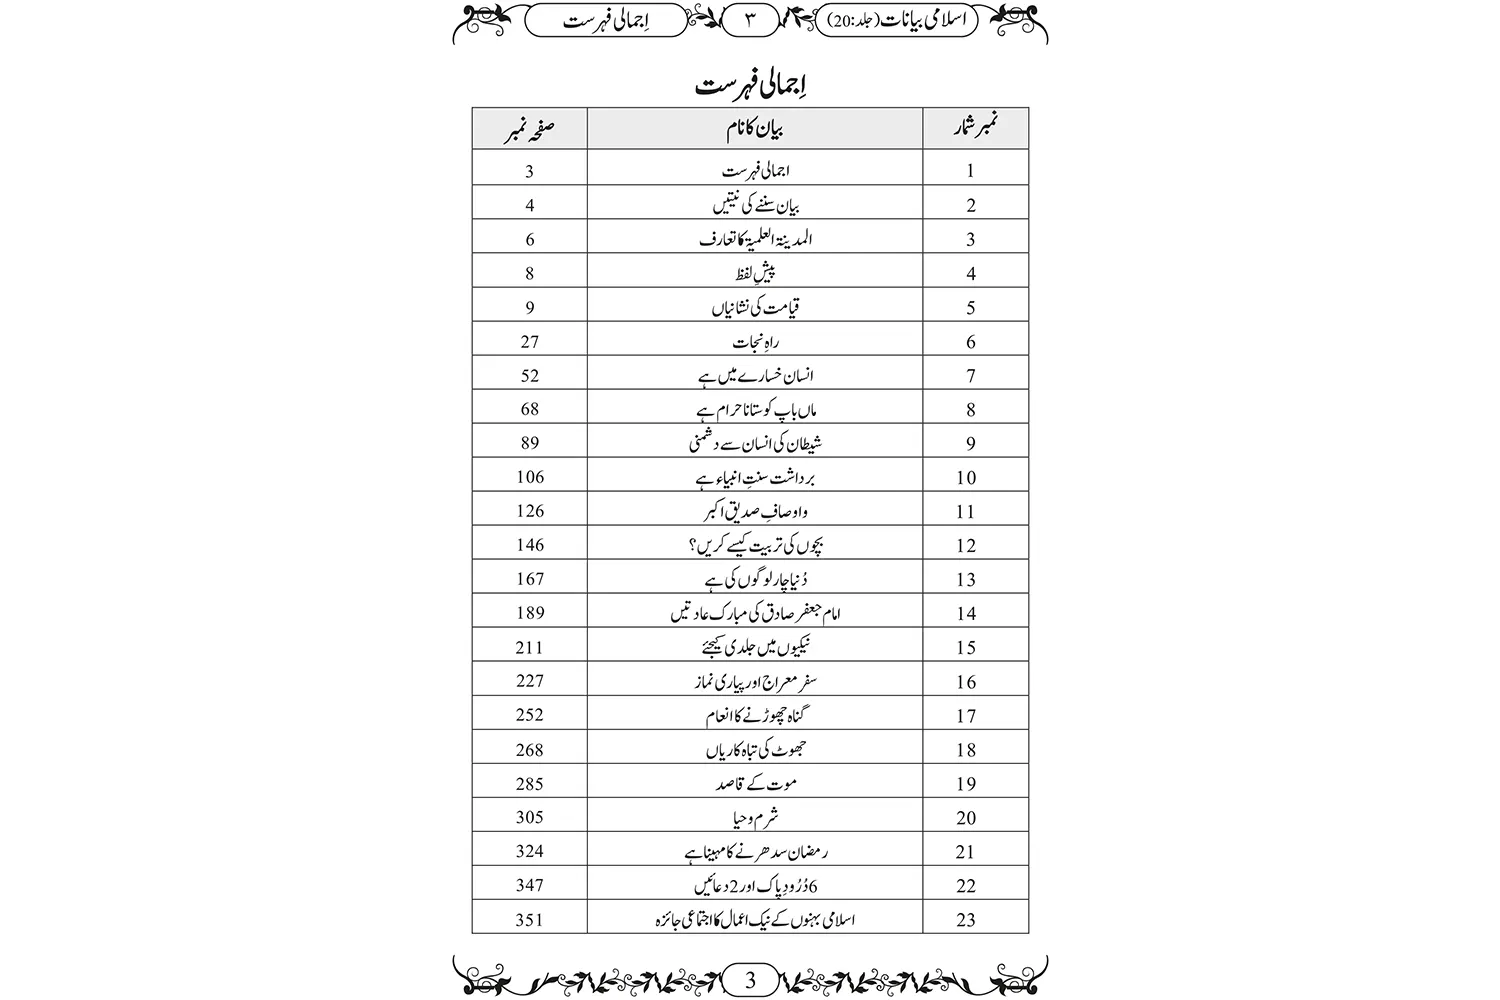 اسلامی بیانات (جلد:20) ۳ اِجمالی فہرست
اِجمالی فہرست
نمبر شمار بیان کا نام صفحہ نمبر
1 اجمالی فہرست 3
2 بیان سننے کی نیتیں 4
3 المدینۃ العلمیۃ کا تعارف 6
4 پیشِ لفظ 8
5 قیامت کی نشانیاں 9
6 راہِ نجات 27
7 انسان خسارے میں ہے 52
8 ماں باپ کو ستانا حرام ہے 68
9 شیطان کی انسان سے دشمنی 89
10 برداشت سنتِ انبیاء ہے 106
11 واوصافِ صدیق اکبر 126
12 بچوں کی تربیت کیسے کریں؟ 146
13 دُنیا چار لوگوں کی ہے 167
14 امام جعفر صادق کی مبارک عادتیں 189
15 نیکیوں میں جلدی کیجئے 211
16 سفر معراج اور پیاری نماز 227
17 گناہ چھوڑنے کا انعام 252
18 جھوٹ کی تباہ کاریاں 268
19 موت کے قاصد 285
20 شرم و حیا 305
21 رمضان سدھرنے کا مہینا ہے 324
22 6 دُرُودِ پاک اور 2 دعائیں 347
23 اسلامی بہنوں کے نیک اعمال کا اجتماعی جائزہ 351
3